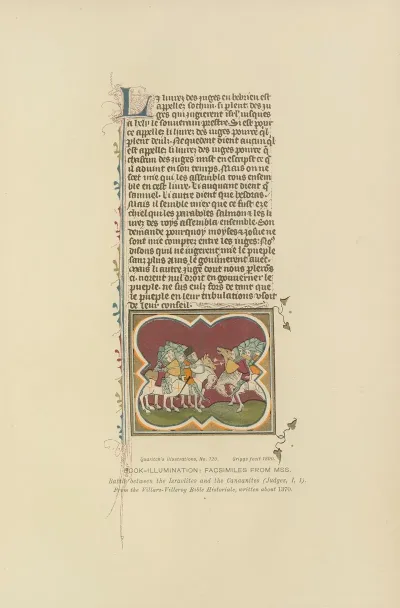 Li livrez des iuges en hebrieu est
appellez sothim. si plent des iu
ges qui iugierent isrl iusques
a hely le souverain prestre. Si est pour
ce appellez li livrez des iuges pource ql
plent deulz. Ne quedent dient aucun ql
est appellez li livrez des iuges pource q
chascun des iuges mist en escript ce q
il advint en son temps. Mais on ne
scet mie qui les assembla tous ensem
ble en cest livre. Li auquant dient q
samuel. Li autre dient que
Mais il semble mier que ce fust eze
chiel qui les paraboles salmon & les li
vrez des roys assembla ensemble. Son
demande pourquoy moyses & iosue ne
sont mie compter entre les iuges. Nos
disons quil ne iugierent mie le pueple
sanz plus ains le gouvernerent avec.
mais li autre iuge dont nous plerons
ci. norent nul droit en gouverner le
pueple. ne fus culz fors de tant que
le pueple en leur tribulations usoit
de leur conseil.
Quaritch's Illustrations, No. 139. Griggs fecit 1890.
BOOK-ILLUMINATION: FACSIMILES FROM MSS.
Battle between the Israelites and the Canaanites (Judges, I, 1).
From the Villers-Villeroy Bible Historiale, written about 1370.